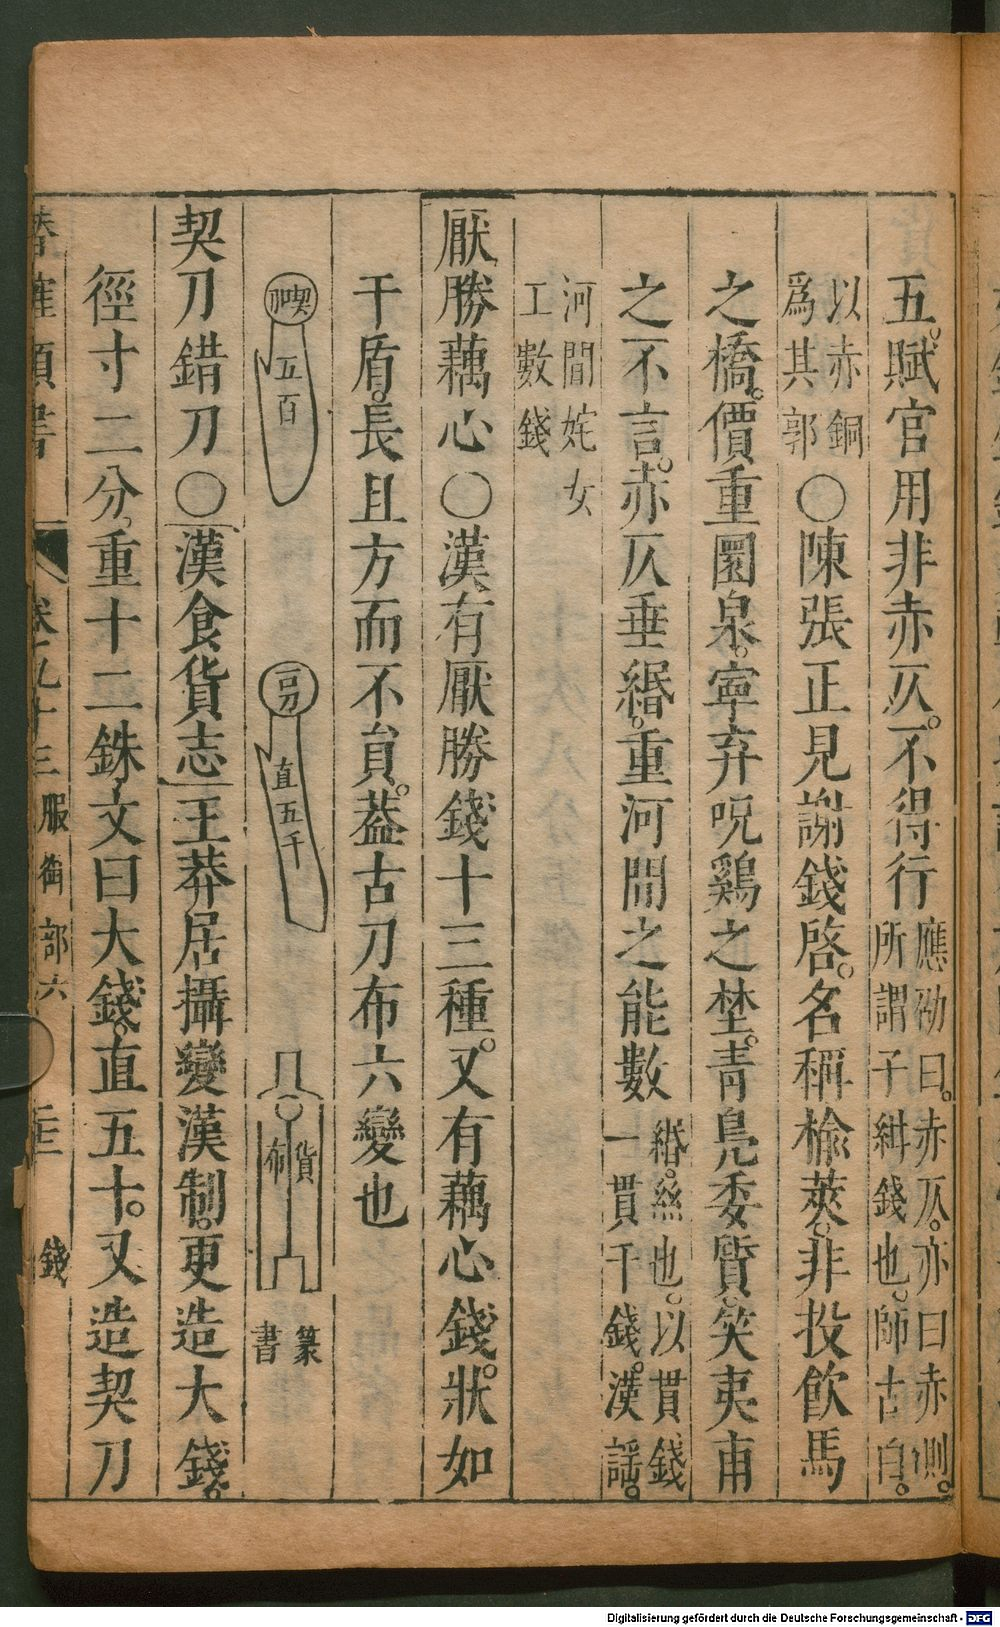 五。賦官用非赤仄。不得行應劭曰。赤仄。亦曰赤側。
所謂子紺錢也。師古曰。
以赤銅
爲其郭○陳張正見謝錢啓。名稱榆莢。非投飲馬
之橋。價重圜泉。寧弃呪鷄之埜。靑鳧委質。笑夷甫
之不言。赤仄垂緡。重河間之能數緡。絲也。以貫錢
一貫千錢。漢謡。
河間姹女
工數錢
厭勝藕心○漢有厭勝錢十三種。又有藕心錢。狀如
干盾。長且方而不負。葢古刀布六變也
禊
五百
刀
直五千
貨
布
篆
書
契刀錯刀○漢食貨志王莽居攝變漢制。更造大錢。
徑寸二分。重十二銖文曰大錢。直五十。又造契刀
卷九十三 服御部六 錢
Digitalisierung gefördert durch die Deutsche Forschungsgemeinschaft - DFG